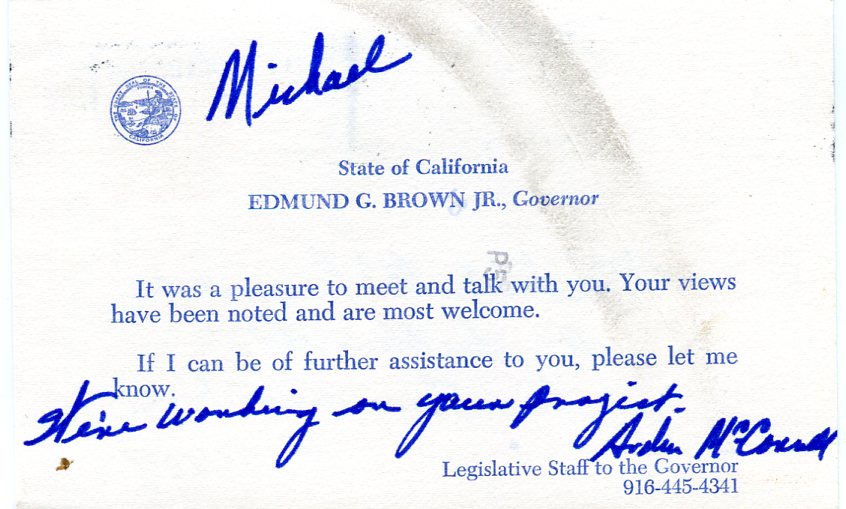 Michael
State of California
EDMUND G. BROWN JR., Governor
It was a pleasure to meet and talk with you. Your views
have been noted and are most welcome.
If I can be of further assistance to you, please let me
know.
We're working on your project.
Arden McConnell
Legislative Staff to the Governor
916-445-4341